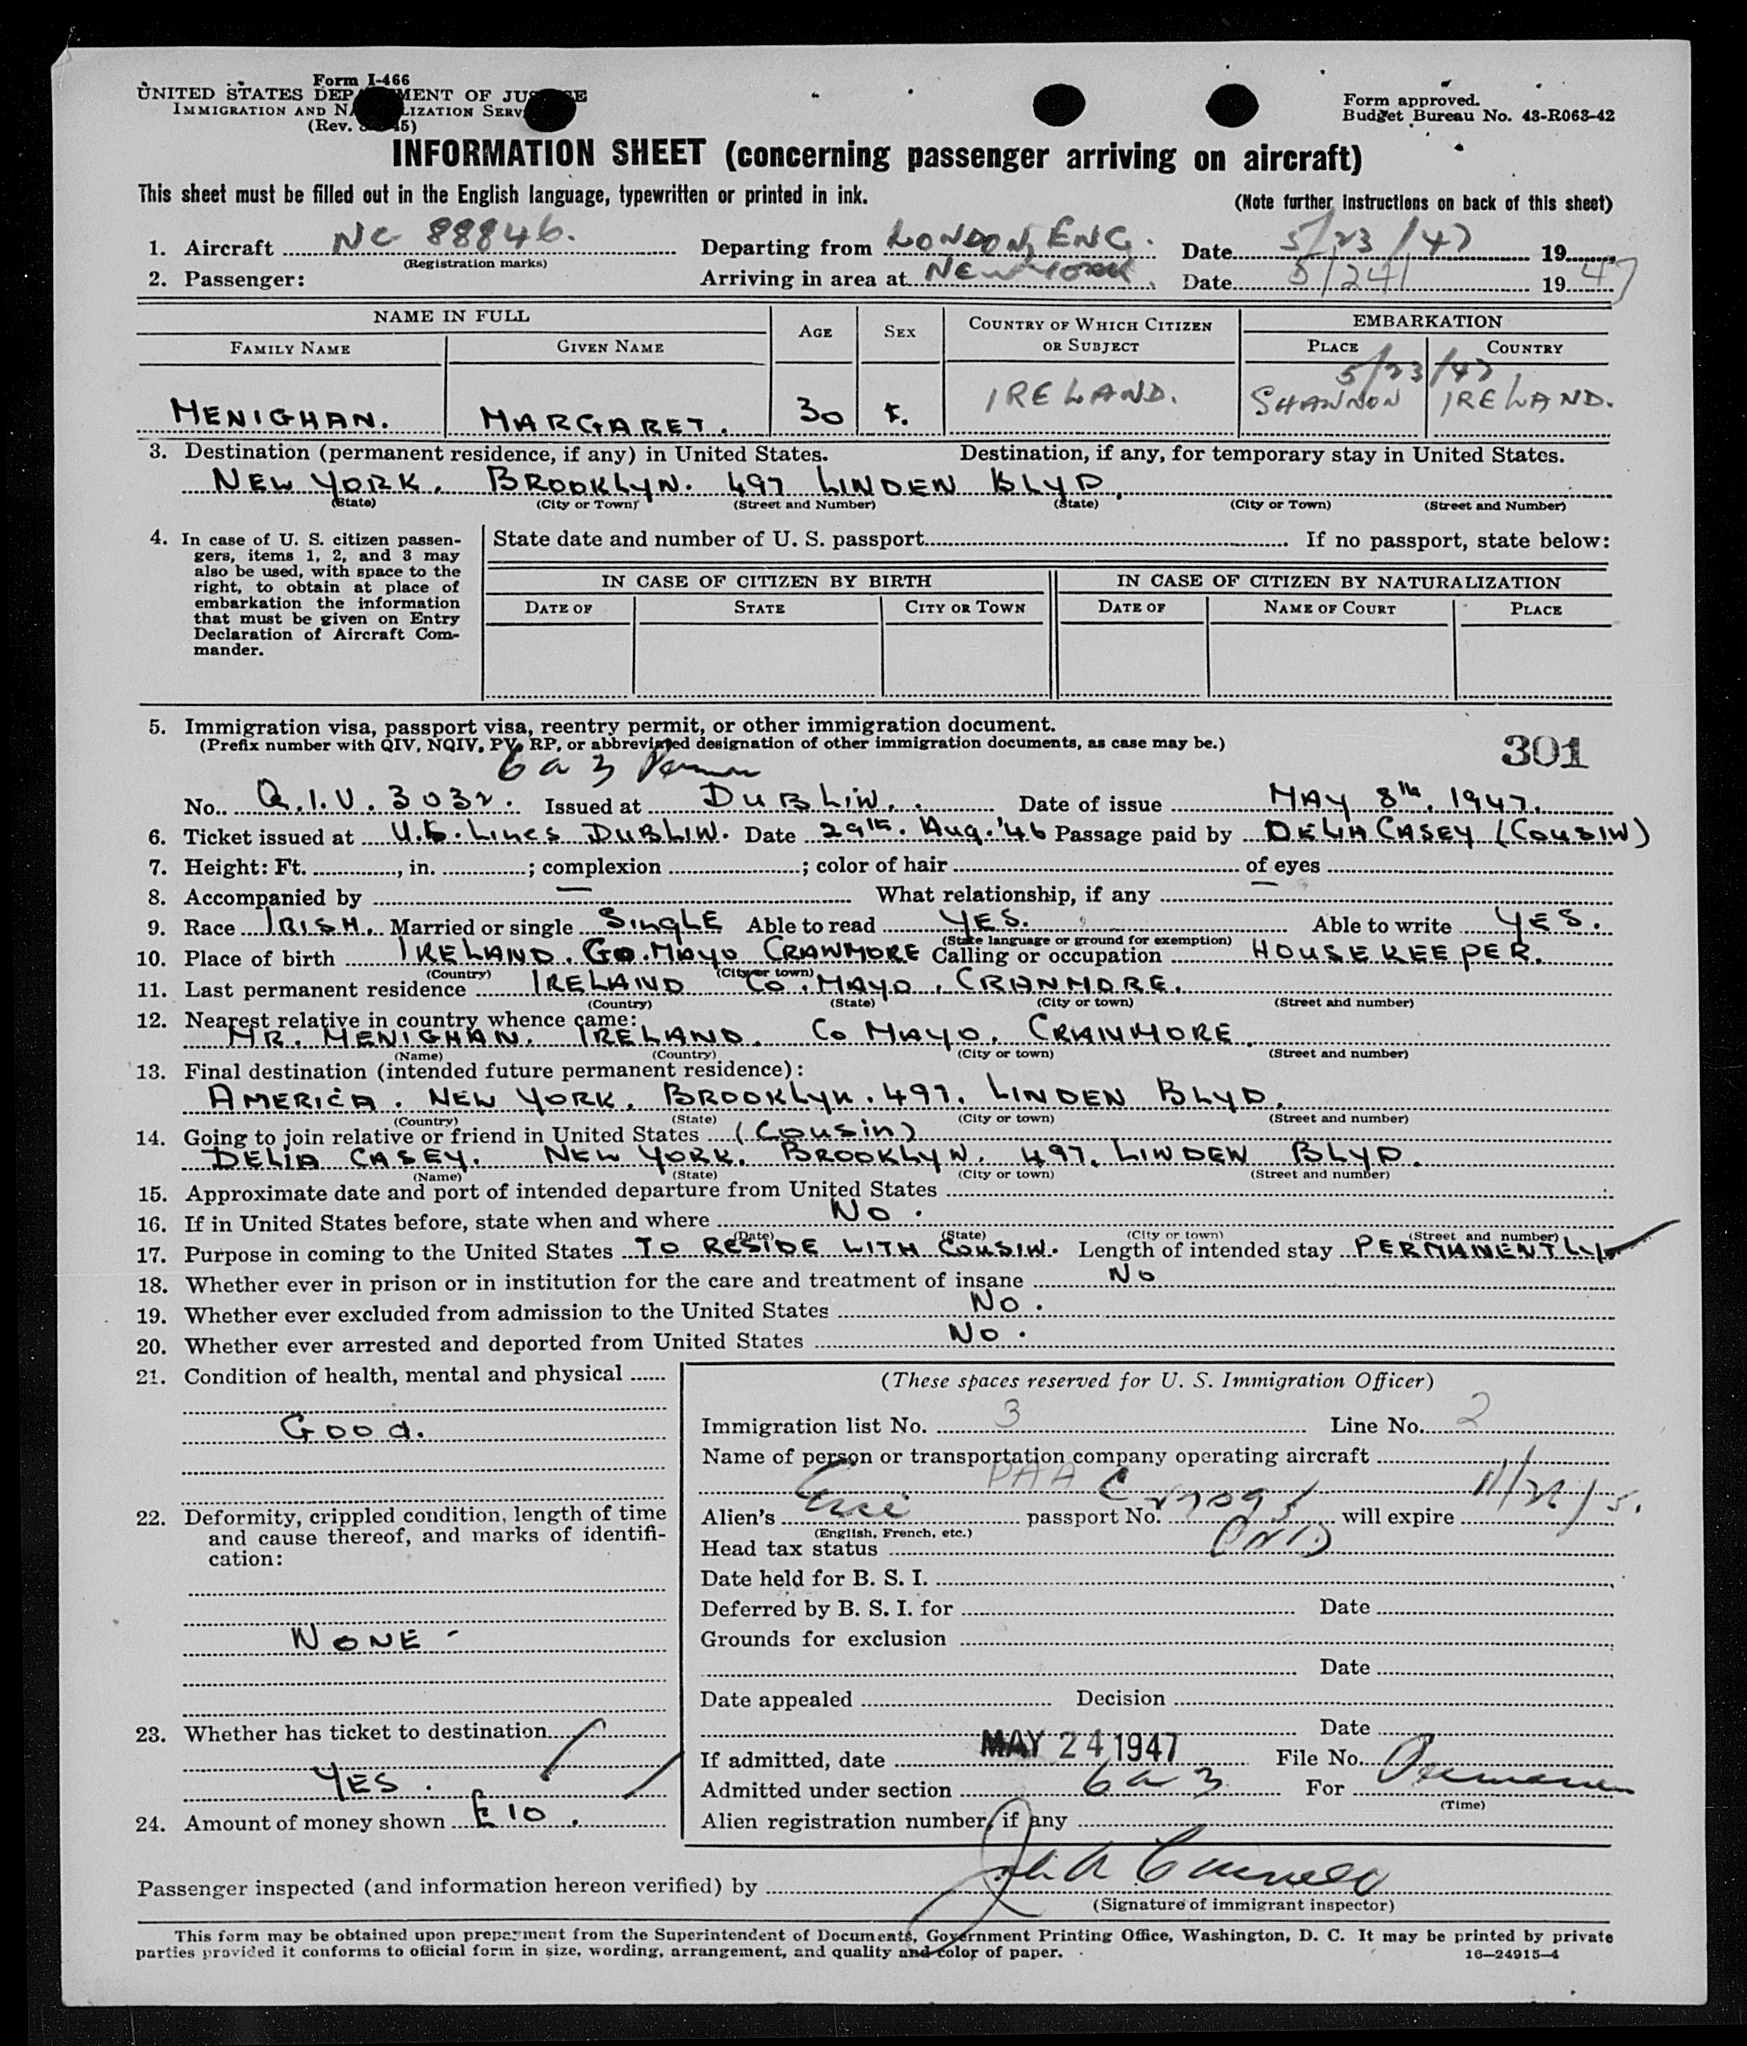 Form I-466
UNITED STATES DEPARTMENT OF JUSTICE
IMMIGRATION AND NATURALIZATION SERVICE
(Rev. 45)
Form approved.
Budget Bureau No. 43-R063-42
INFORMATION SHEET (concerning passenger arriving on aircraft)
This sheet must be filled out in the English language, typewritten or printed in ink.
(Note further instructions on back of this sheet)
1. Aircraft NC 88846. Departing from LONDON, ENG. Date 5/23/47 19
(Registration marks)
2. Passenger: Arriving in area at NEW YORK, Date 5/24/ 1947
NAME IN FULL AGE SEX COUNTRY OF WHICH CITIZEN OR SUBJECT EMBARKATION
FAMILY NAME GIVEN NAME PLACE COUNTRY
5/23/47
MENIGHAN. MARGARET. 30 F. IRELAND. SHANNON IRELAND.
3. Destination (permanent residence, if any) in United States. Destination, if any, for temporary stay in United States.
NEW YORK. BROOKLYN. 497 LINDEN BLVD.
(State) (City or Town) (Street and Number) (State) (City or Town) (Street and Number)
4. In case of U. S. citizen passengers, items 1, 2, and 3 may also be used, with space to the right, to obtain at place of embarkation the information that must be given on Entry Declaration of Aircraft Commander.
State date and number of U. S. passport If no passport, state below:
IN CASE OF CITIZEN BY BIRTH IN CASE OF CITIZEN BY NATURALIZATION
DATE OF STATE CITY OR TOWN DATE OF NAME OF COURT PLACE
5. Immigration visa, passport visa, reentry permit, or other immigration document.
(Prefix number with QIV, NQIV, PV, RP, or abbreviated designation of other immigration documents, as case may be.)
301
6 a 3 Perman
No. Q.I.V. 3032. Issued at DUBLIN. Date of issue MAY 8th. 1947.
6. Ticket issued at U.S. Lines DUBLIN. Date 29th. Aug. '46 Passage paid by DELIA CASEY (COUSIN)
7. Height: Ft. , in. ; complexion ; color of hair of eyes
8. Accompanied by — What relationship, if any —
9. Race IRISH. Married or single SINGLE Able to read YES. Able to write YES.
(State language or ground for exemption)
10. Place of birth IRELAND. CO. MAYO CRANMORE Calling or occupation HOUSEKEEPER.
(Country) (City or town)
11. Last permanent residence IRELAND CO. MAYO. CRANMORE.
(Country) (State) (City or town) (Street and number)
12. Nearest relative in country whence came:
MR. MENIGHAN. IRELAND. CO MAYO. CRANMORE.
(Name) (Country) (City or town) (Street and number)
13. Final destination (intended future permanent residence):
AMERICA. NEW YORK. BROOKLYN. 497. LINDEN BLVD.
(Country) (State) (City or town) (Street and number)
14. Going to join relative or friend in United States (Cousin)
DELIA CASEY. NEW YORK. BROOKLYN. 497. LINDEN BLVD.
(Name) (State) (City or town) (Street and number)
15. Approximate date and port of intended departure from United States
16. If in United States before, state when and where No.
(Date) (State) (City or town) (Street and number)
17. Purpose in coming to the United States TO RESIDE WITH COUSIN. Length of intended stay PERMANENTLY
18. Whether ever in prison or in institution for the care and treatment of insane No
19. Whether ever excluded from admission to the United States No.
20. Whether ever arrested and deported from United States No.
21. Condition of health, mental and physical
Good.
22. Deformity, crippled condition, length of time and cause thereof, and marks of identification:
NONE -
23. Whether has ticket to destination
YES.
24. Amount of money shown £10.
(These spaces reserved for U. S. Immigration Officer)
Immigration list No. 3 Line No. 2
Name of person or transportation company operating aircraft
PAA
Alien's Eire passport No. will expire
(English, French, etc.)
Head tax status
Date held for B. S. I.
Deferred by B. S. I. for Date
Grounds for exclusion
Date
Date appealed Decision
Date
If admitted, date MAY 24 1947 File No.
Admitted under section 6 a 3 For Permanen
(Time)
Alien registration number, if any
Passenger inspected (and information hereon verified) by
(Signature of immigrant inspector)
This form may be obtained upon prepayment from the Superintendent of Documents, Government Printing Office, Washington, D. C. It may be printed by private
parties provided it conforms to official form in size, wording, arrangement, and quality and color of paper.
16—24915-4